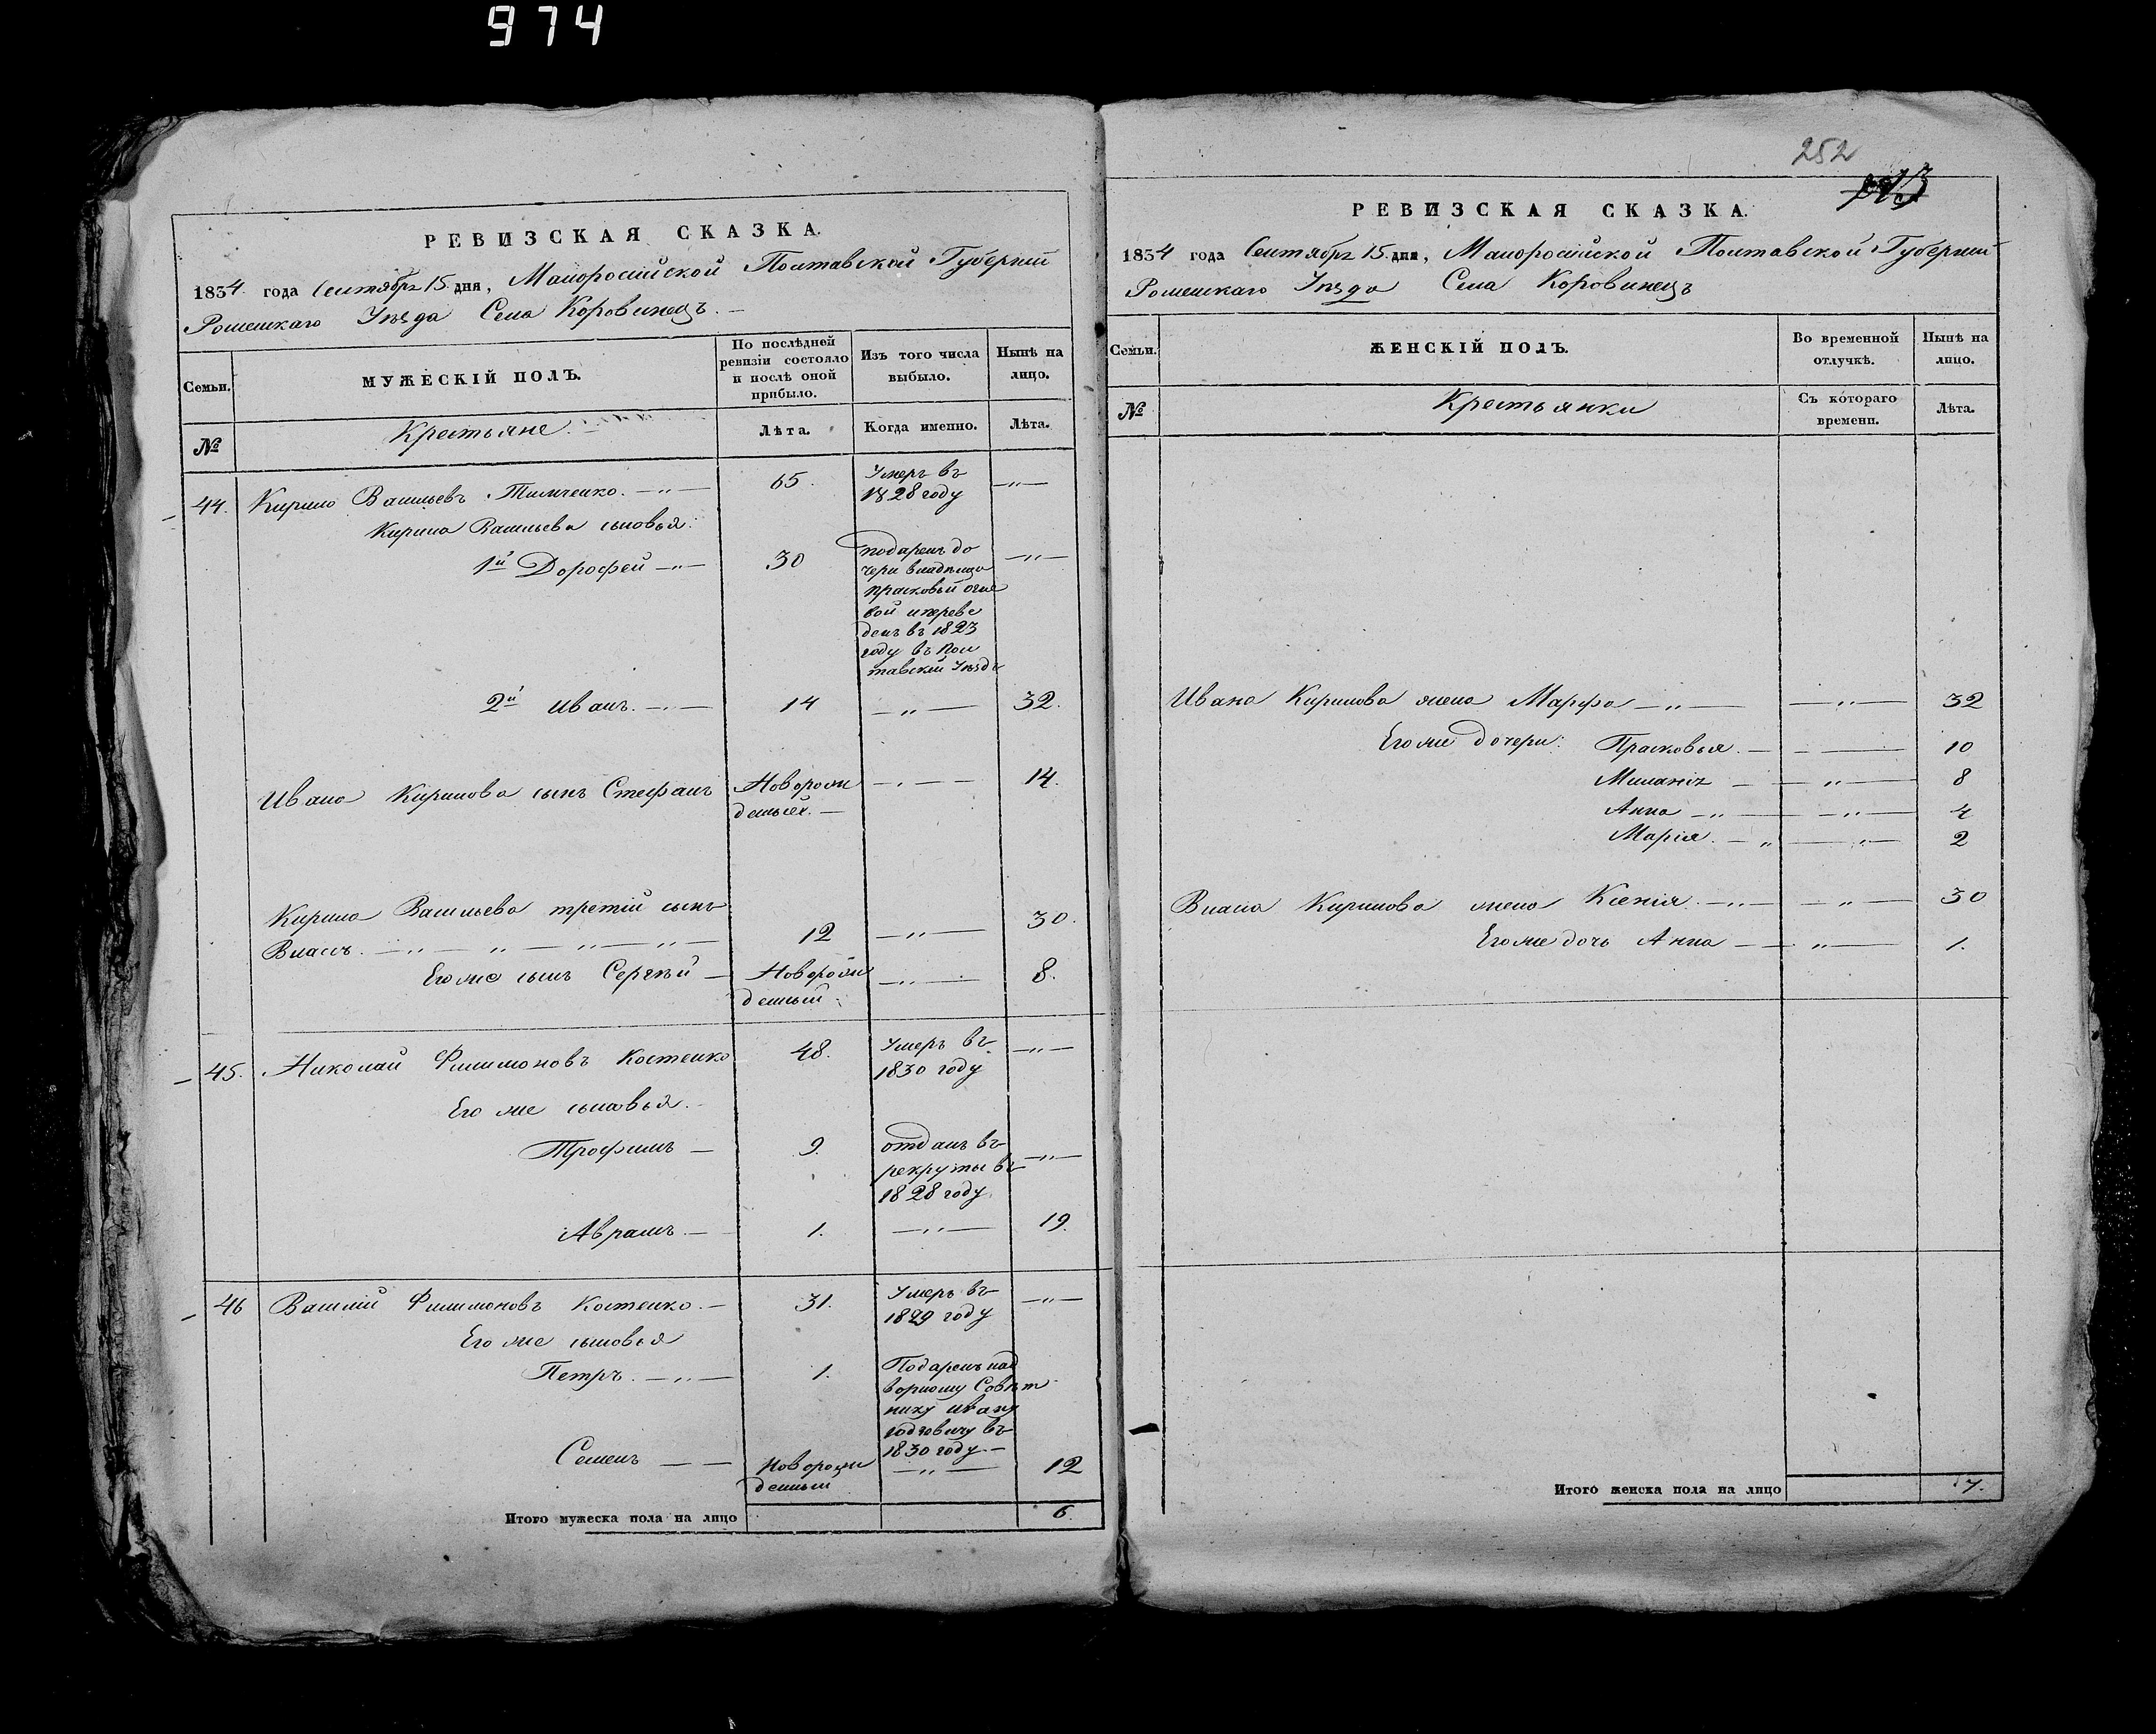 974
РЕВИЗСКАЯ СКАЗКА.
1834. года Сентября 15. дня, Малоросійской Полтавской Губерніи
Роменскаго Уѣзда Села Коровинецъ. —
Семьи.
МУЖЕСКІЙ ПОЛЪ.
По послѣдней ревизіи состояло и послѣ оной прибыло.
Изъ того числа выбыло.
Нынѣ на лицо.
№
Крестьяне.
Лѣта.
Когда именно.
Лѣта.
44. Кирило Васильевъ Тимченко. —„— 65. Умеръ въ —„—
1828 году
Кирила Васильева сыновья:
1й Дорофей —„— 30 подаренъ до —„—
чери владѣльца
Прасковьи
вой и переве
денъ въ 1823
году въ Пол
тавскій Уѣздъ
2й Иванъ. —„— 14 —„— 32.
Ивана Кирилова сынъ Стефанъ Новорож —„— 14.
денный. —
Кирила Васильева третій сынъ
Власъ. —„—„—„—„— 12 —„— 30.
Его же сынъ Сергѣй — Новорож —„— 8.
денный
45. Николай Филимоновъ Костенко 48. Умеръ въ —„—
1830 году
Его же сыновья.
Трофимъ — 9. отданъ въ —„—
рекруты въ
1828 году
Аврамъ. — 1. —„— 19.
46 Василій Филимоновъ Костенко. — 31. Умеръ въ —„—
1829 году
Его же сыновья
Петръ. —„— 1. Подаренъ над
ворному Совѣт
нику Ивану
въ
1830 году —
Семенъ — — Новорож —„— 12
денный
Итого мужеска пола на лицо 6.
252
РЕВИЗСКАЯ СКАЗКА.
1834 года Сентября 15. дня, Малоросійской Полтавской Губерніи
Роменскаго Уѣзда Села Коровинецъ
Семьи.
ЖЕНСКІЙ ПОЛЪ.
Во временной отлучкѣ.
Нынѣ на лицо.
№
Крестьянки
Съ котораго времени.
Лѣта.
Ивана Кирилова жена Марфа —„— —„— 32
Его же дочери: Прасковья. — — — 10
Миланія — —„— 8
Анна —„— —„— 4
Марія. —„ —„— 2
Власа Кирилова жена Ксенія. —„— —„— 30
Его же дочь Анна — —„— 1.
Итого женска пола на лицо 7.